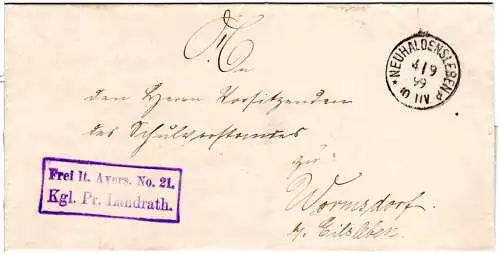 An
NEUHALDENSLEBEN
4/9
99
den Herrn Vorsitzenden
des Schulvorstandes
zu
Frei lt. Avers. No. 21.
Kgl. Pr. Landrath.
Wormsdorf
b/ Eilsleben